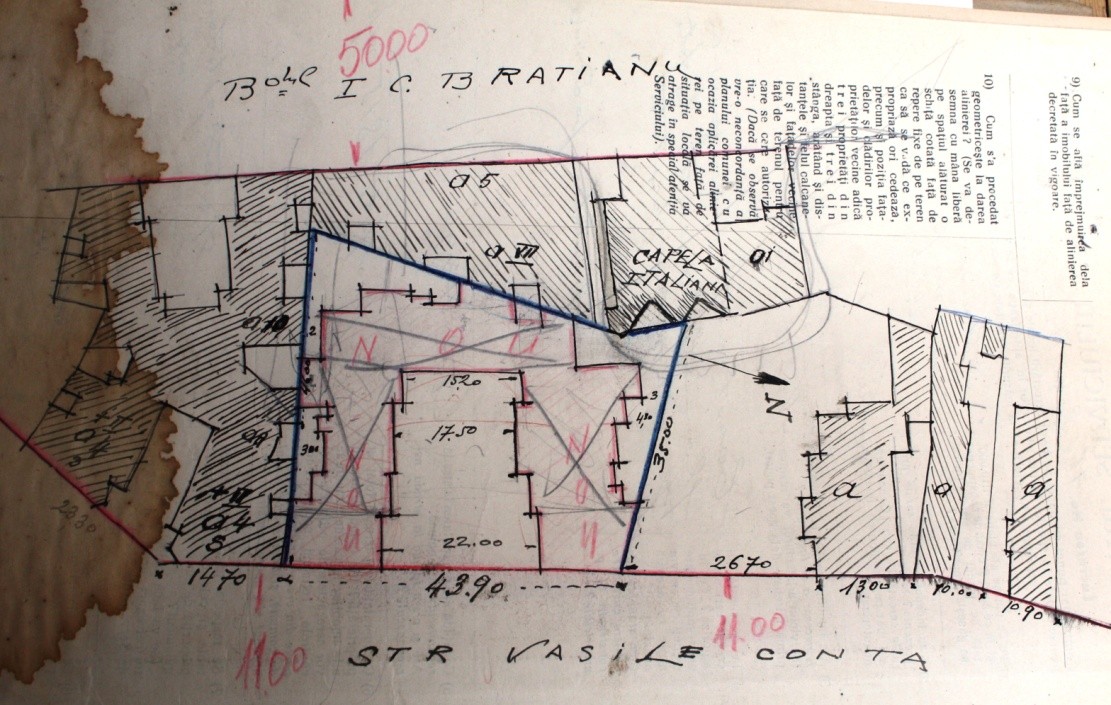 5000
B-dul I C BRATIANU
9) Cum se află împrejmuirea dela
față a imobilului față de alinierea
decretată în vigoare.
10) Cum s'a procedat
geometricește la darea
alinierei? (Se va de-
semna cu mâna liberă
pe spațiul alăturat o
schiță cotată față de
repere fixe de pe teren
ca să se vadă ce ex-
propriază ori cedează,
precum și poziția fața-
delor și clădirilor pro-
prietăților vecine adică
trei proprietăți din
dreapta și trei din
stânga, arătând și dis-
tanțele și felul calcane-
lor și fațadelor vecine
față de terenul pentru
care se cere autoriza-
ția. (Dacă se observă
vre-o neconcordanță a
planului comunei cu
ocazia aplicărei alinie-
rei pe teren față de
situația locală se va
atrage în special atenția
Serviciului).
a 5
a VII
CAPELA
ITALIANA
a1
2
NOU
1520
17.50
22.00
3
35.00
N
NOU
NOU
a
a
a
a4
2670
1470
43.90
1300
10.00
10.90
1100
11.00
STR VASILE CONTA